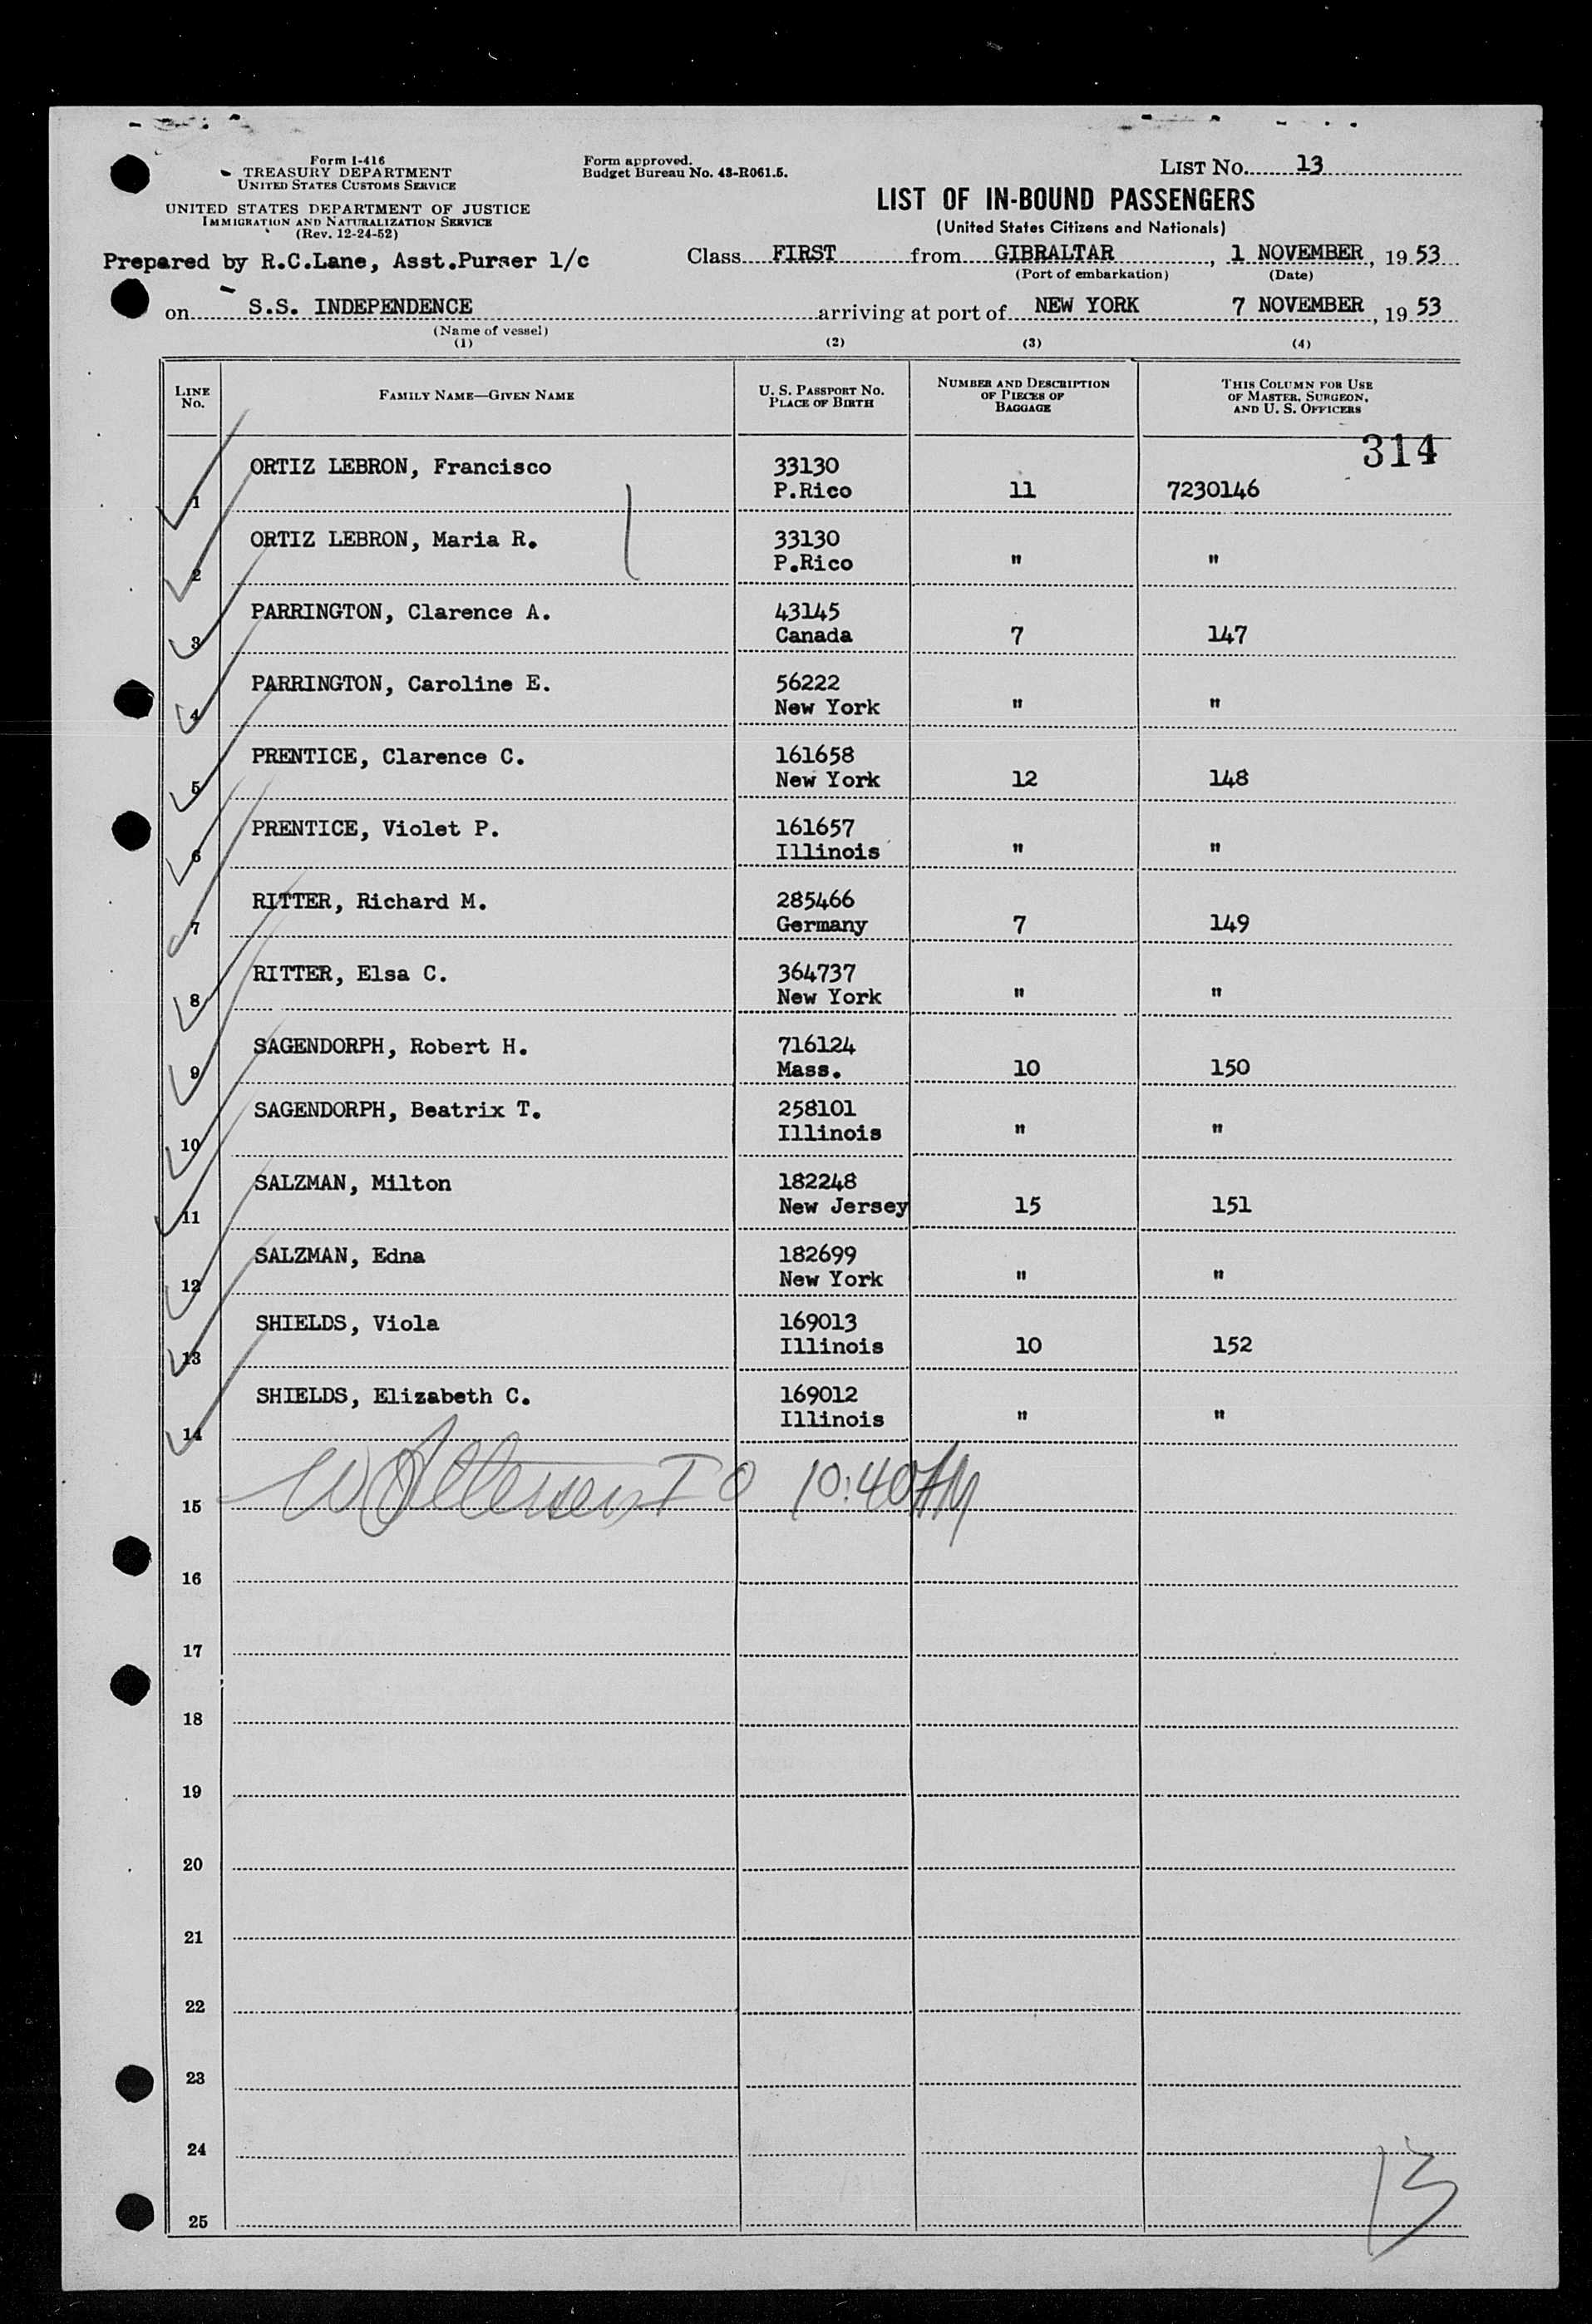 Form I-416
TREASURY DEPARTMENT
UNITED STATES CUSTOMS SERVICE
UNITED STATES DEPARTMENT OF JUSTICE
IMMIGRATION AND NATURALIZATION SERVICE
(Rev. 12-24-52)
Form approved.
Budget Bureau No. 43-R061.5.
LIST No. 13
LIST OF IN-BOUND PASSENGERS
(United States Citizens and Nationals)
Prepared by R.C.Lane, Asst.Purser 1/c
Class FIRST from GIBRALTAR, 1 NOVEMBER, 1953
(Port of embarkation) (Date)
on S.S. INDEPENDENCE arriving at port of NEW YORK 7 NOVEMBER, 1953
(Name of vessel)
(1) (2) (3) (4)
LINE No. FAMILY NAME—GIVEN NAME U. S. PASSPORT No. PLACE OF BIRTH NUMBER AND DESCRIPTION OF PIECES OF BAGGAGE THIS COLUMN FOR USE OF MASTER, SURGEON, AND U. S. OFFICERS
314
ORTIZ LEBRON, Francisco 33130
1 P.Rico 11 7230146
ORTIZ LEBRON, Maria R. 33130
2 P.Rico " "
PARRINGTON, Clarence A. 43145
3 Canada 7 147
PARRINGTON, Caroline E. 56222
4 New York " "
PRENTICE, Clarence C. 161658
5 New York 12 148
PRENTICE, Violet P. 161657
6 Illinois " "
RITTER, Richard M. 285466
7 Germany 7 149
RITTER, Elsa C. 364737
8 New York " "
SAGENDORPH, Robert H. 716124
9 Mass. 10 150
SAGENDORPH, Beatrix T. 258101
10 Illinois " "
SALZMAN, Milton 182248
11 New Jersey 15 151
SALZMAN, Edna 182699
12 New York " "
SHIELDS, Viola 169013
13 Illinois 10 152
SHIELDS, Elizabeth C. 169012
14 Illinois " "
15 I O 10:40AM
16
17
18
19
20
21
22
23
24
25
13